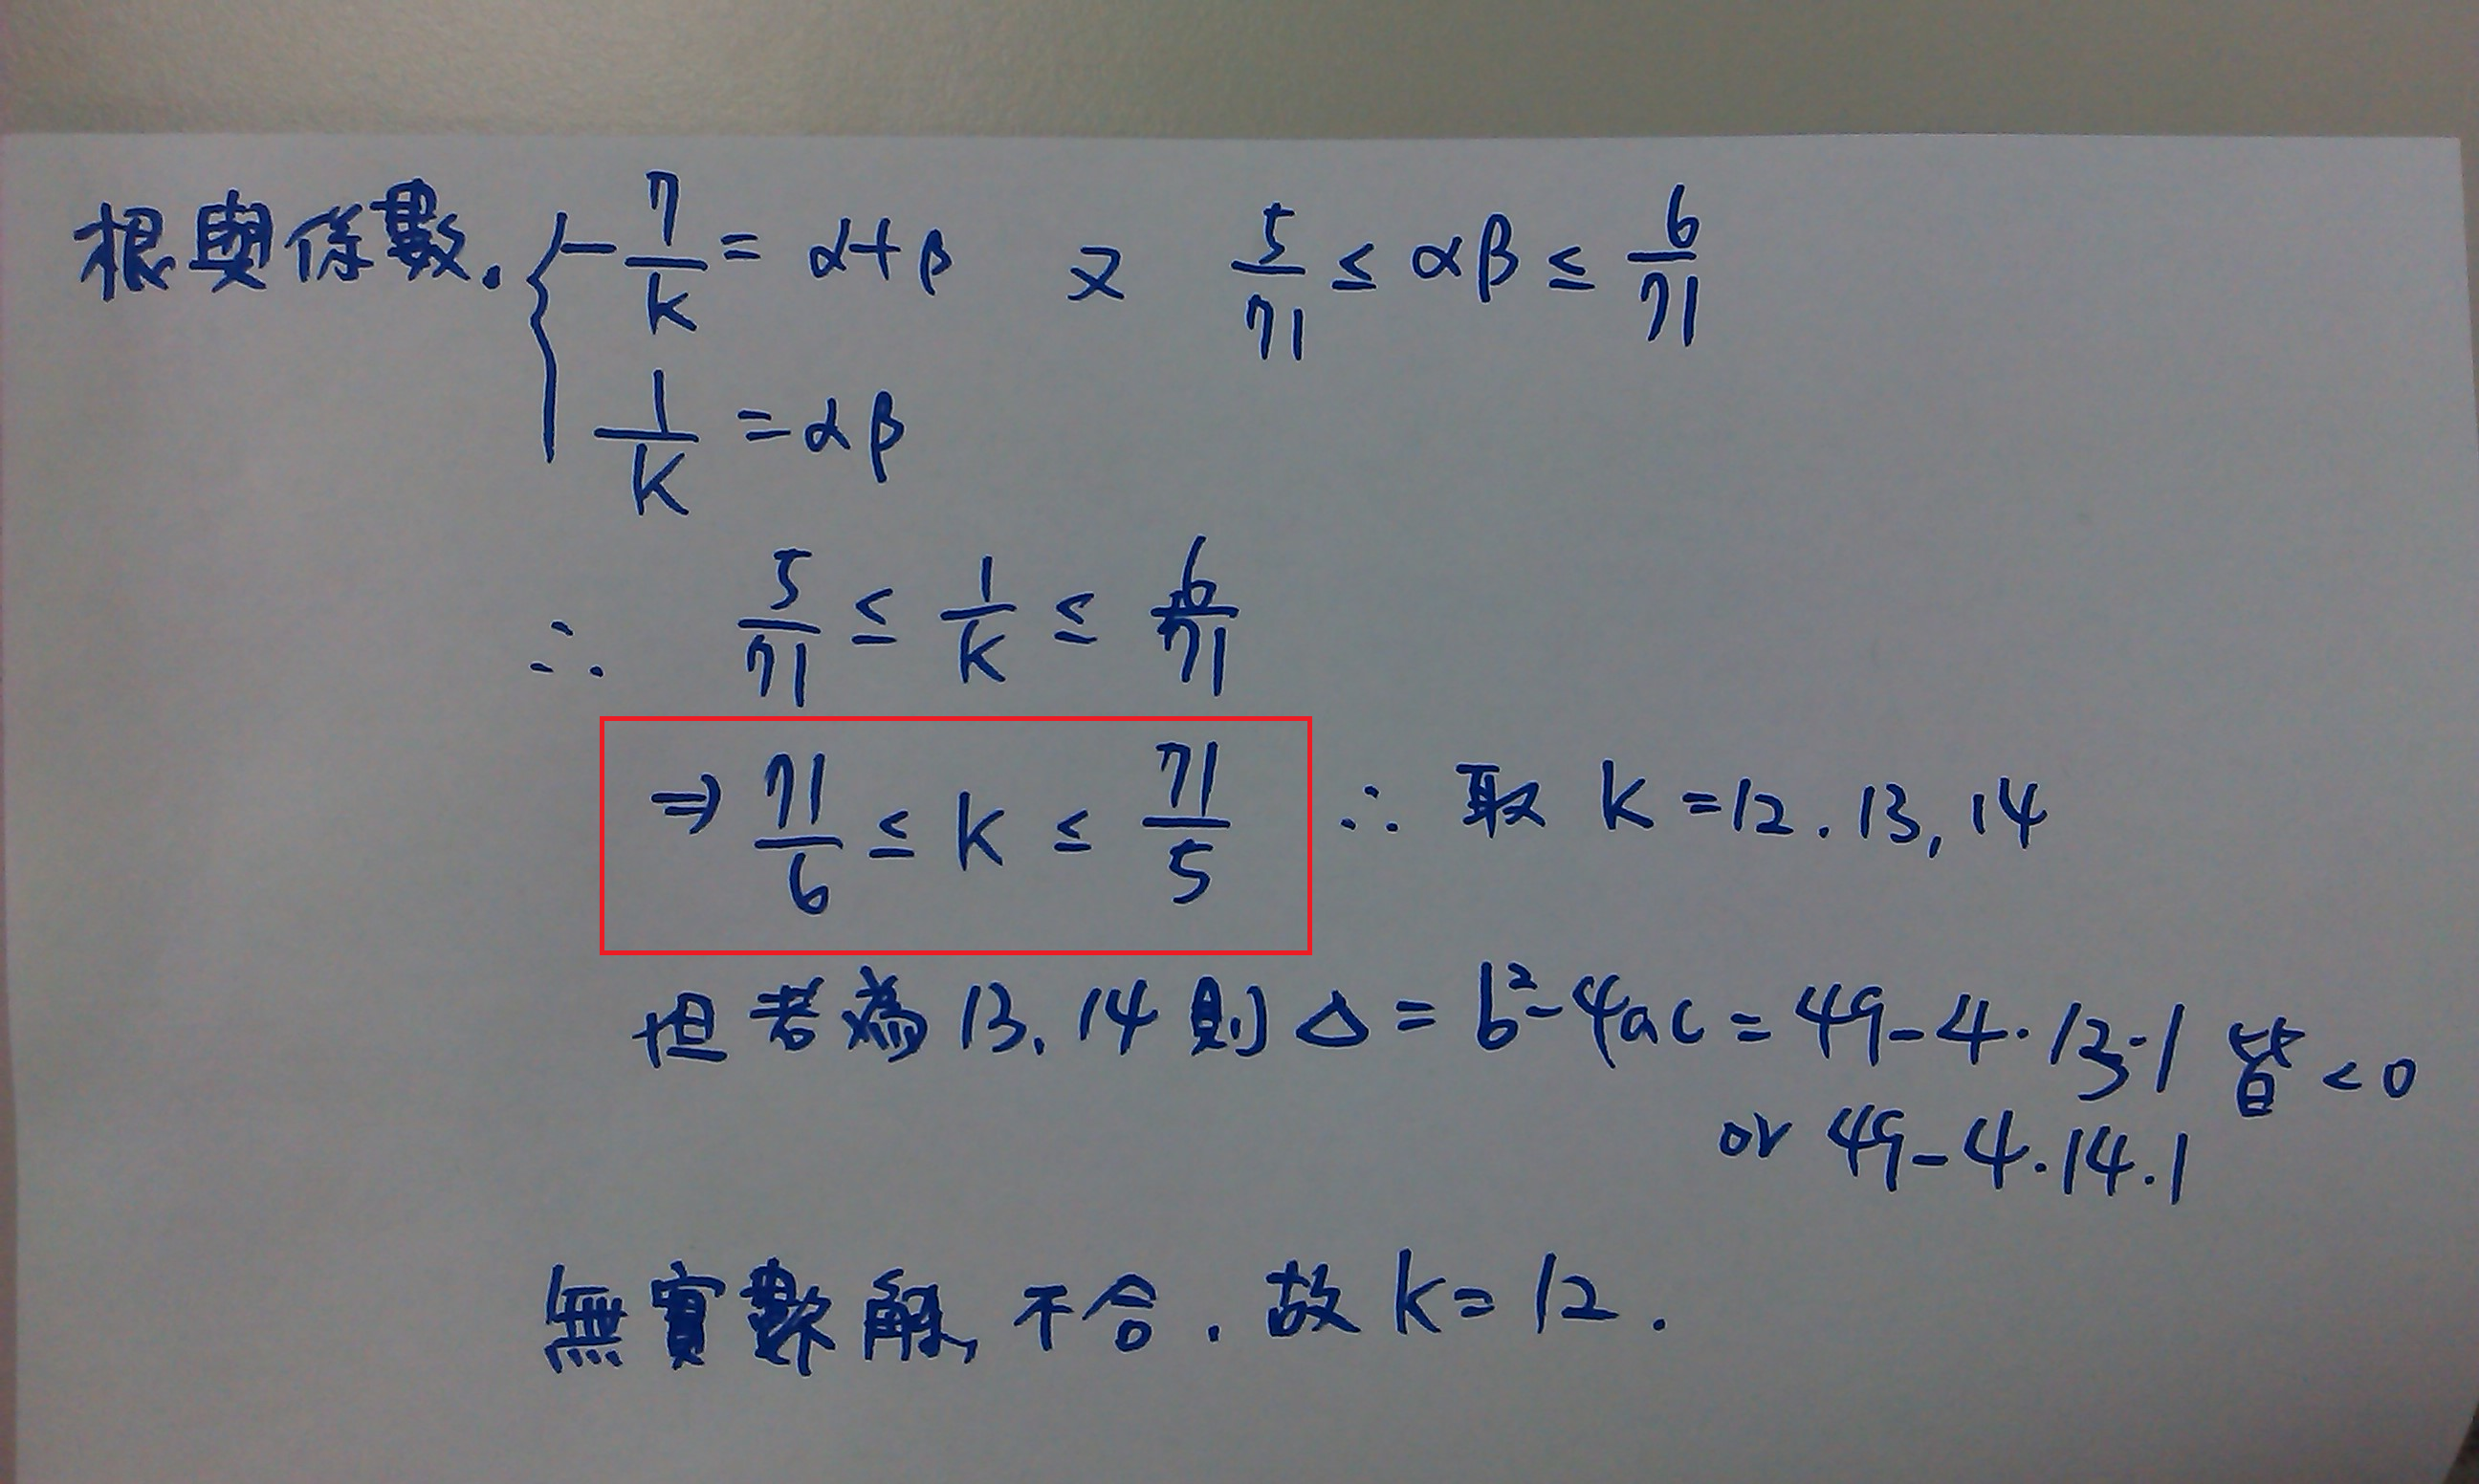 根與係數. { -7/k = α+β 又 5/71 ≤ αβ ≤ 6/71
1/k = αβ
∴ 5/71 ≤ 1/k ≤ 6/71
⇒ 71/6 ≤ k ≤ 71/5 ∴ 取 k = 12. 13, 14
但若為 13. 14 則 △ = b²-4ac = 49-4·13·1 皆 < 0
or 49-4·14·1
無實數解, 不合. 故 k = 12.